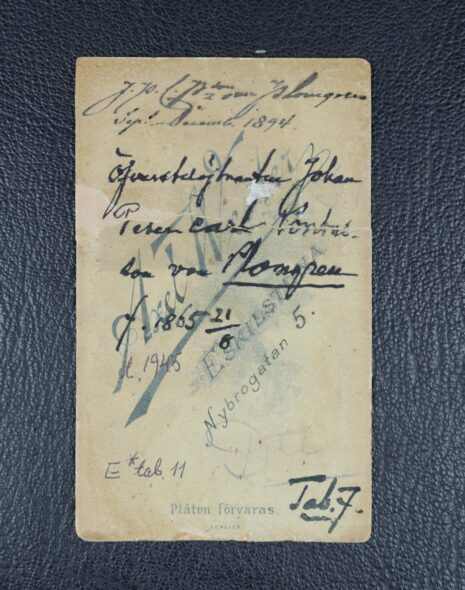 J. P. C. von Plomgren
Sept. Decemb. 1894
Öfverstelöjtnanten Johan
Peter Carl
son von Plomgren
f. 1865 21/6
d. 1945
Axel
ESKILSTUNA
Nybrogatan 5.
E* tab. 11
Tab. 7.
Plåten förvaras.